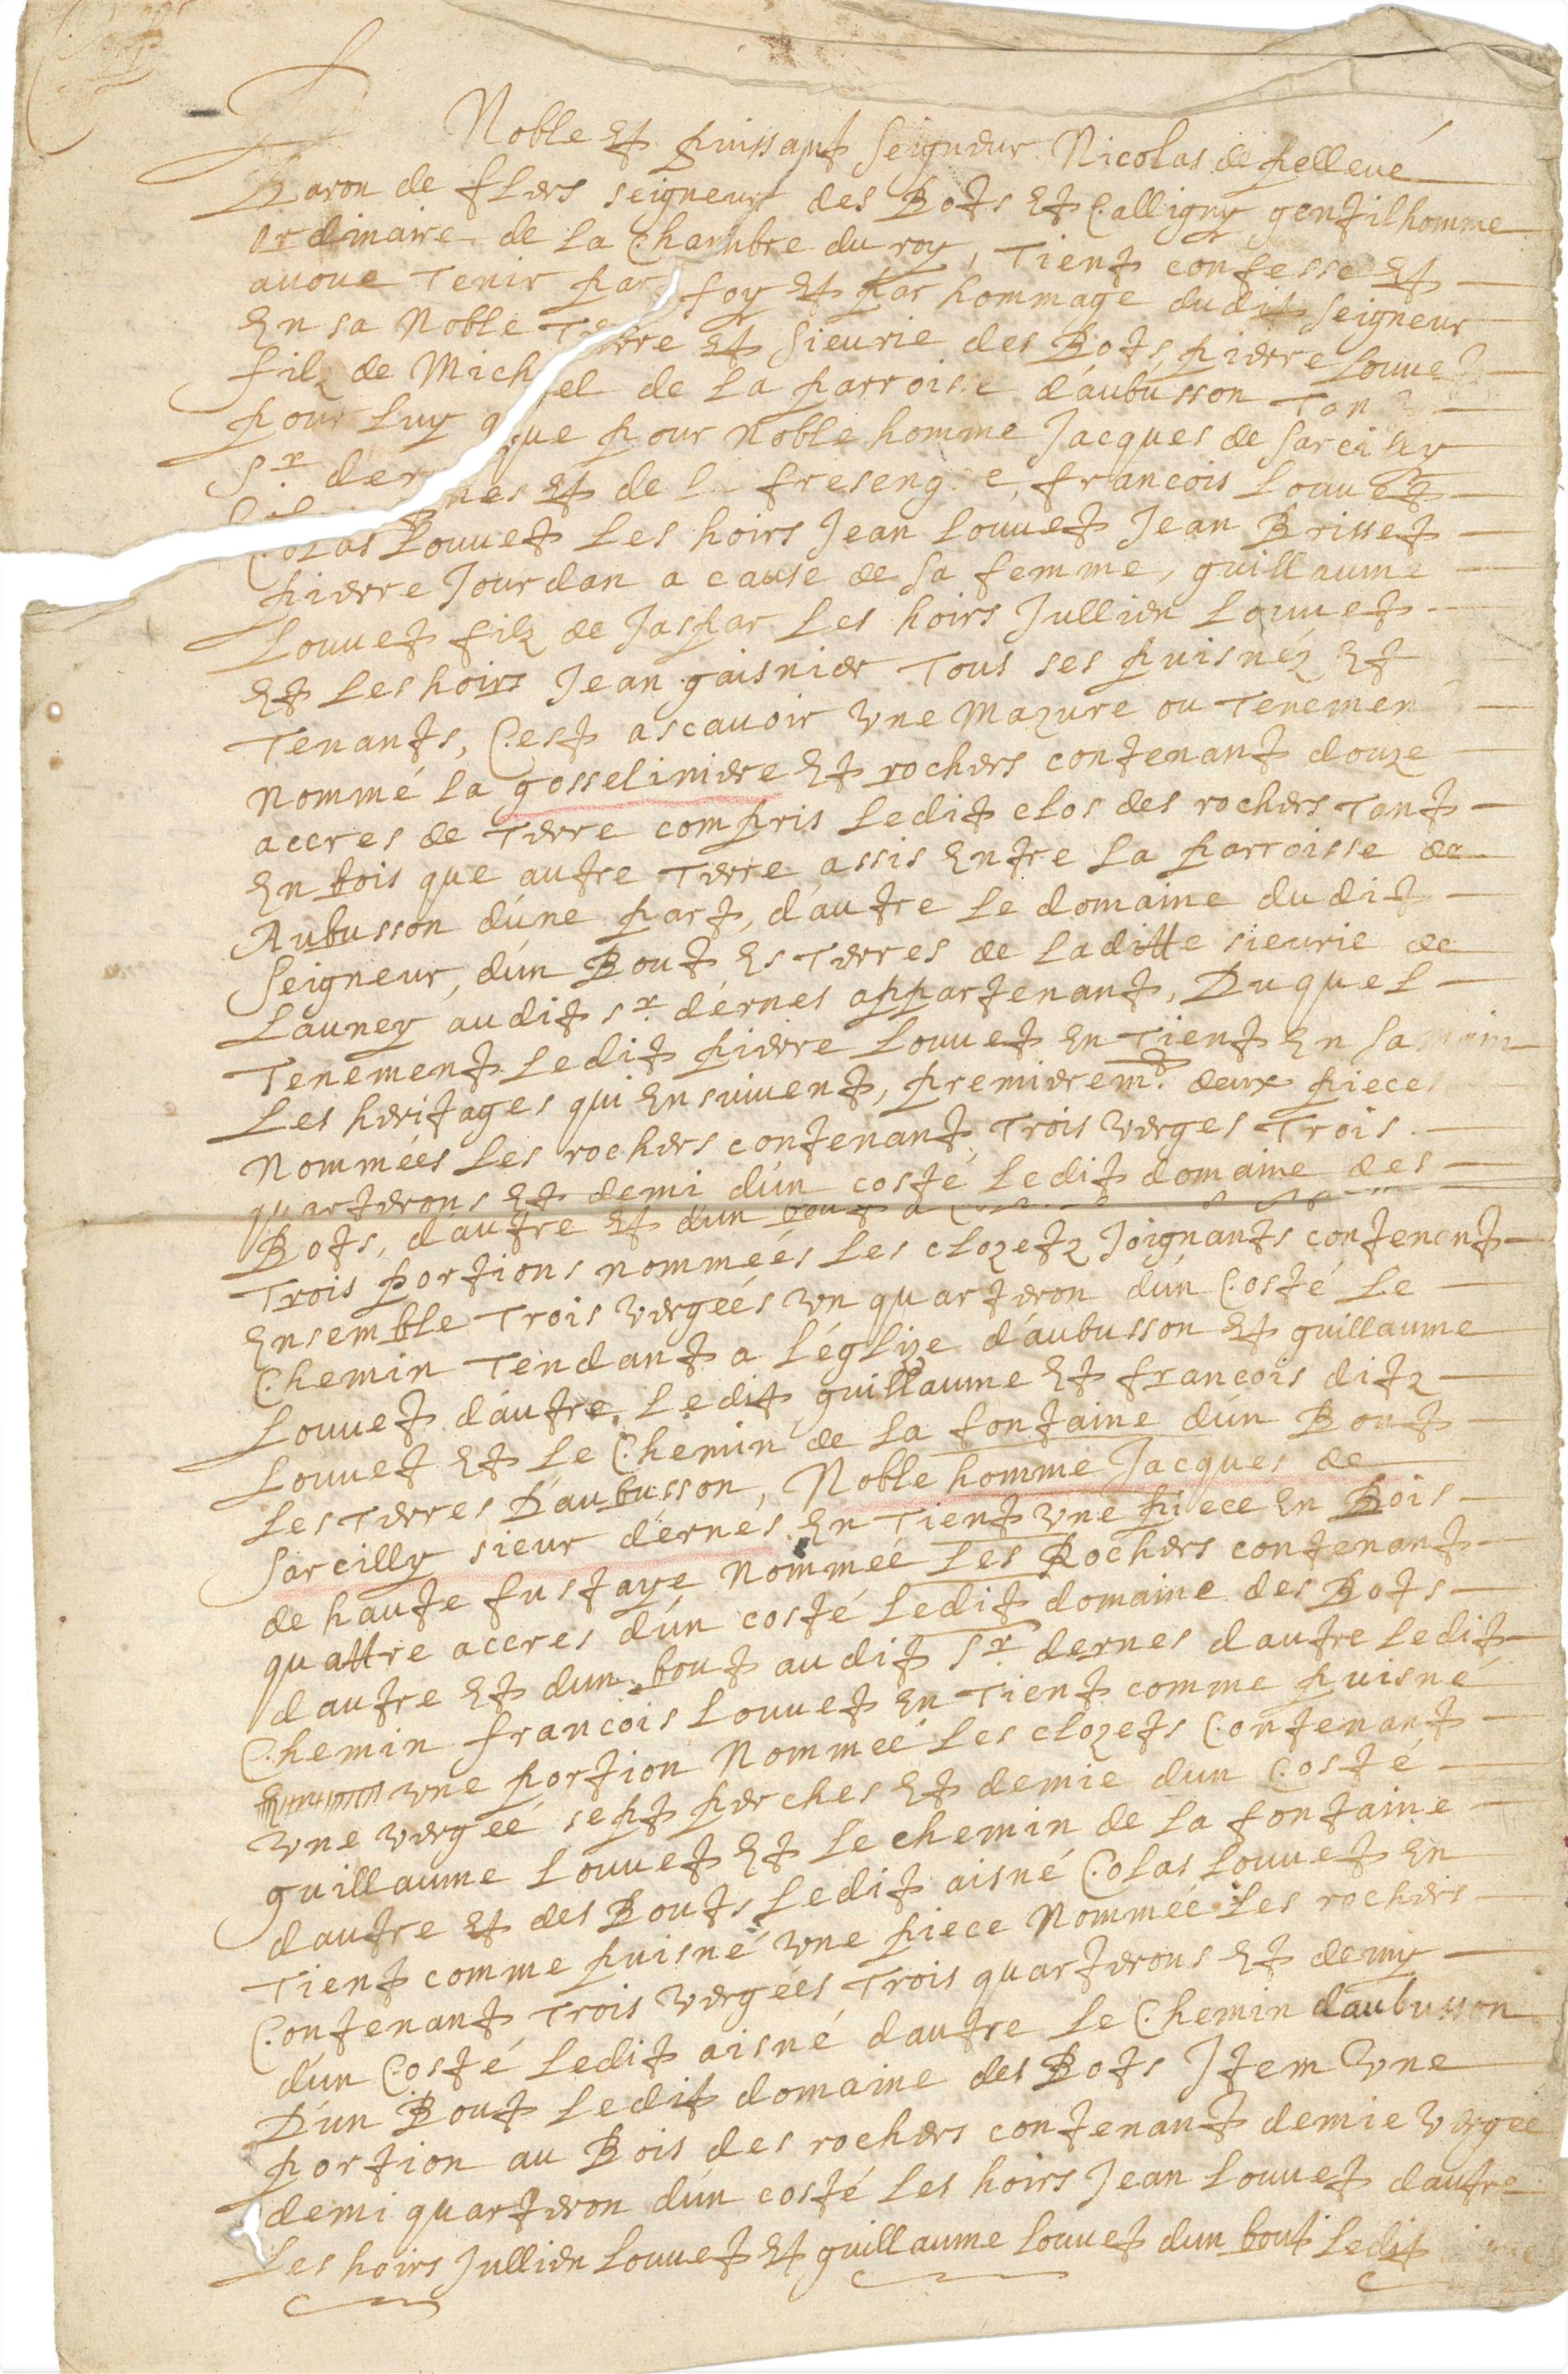 Noble Et puissant seigneur Nicolas de pellevé
Baron de flers seigneur des Bots Et Calligny gentilhomme
ordinaire de la Chambre du roy, Tient confesse Et
avoue Tenir par foy Et par hommage dudit seigneur
En sa Noble Terre Et sieurie des Bots, pierre Louvet
filz de Michel de la parroisse d'aubusson Tant
pour luy que pour Noble homme Jacques de sarcilly
sr. dernes Et de la fresengee, francois Louvet
Colas Louvet les hoirs Jean Louvet Jean Brisset
pierre Jourdan a cause de sa femme, guillaume
Louvet filz de Jaspar les hoirs Jullien Louvet
Et les hoirs Jean gaisnier Tous ses puisnéz Et
Tenants, C'est ascavoir Une Mazure ou Tenement
Nommé la gosseliniere Et rochers contenant douze
accres de Terre compris ledit clos des rochers Tant
En bois que autre Terre assis Entre la parroisse de
Aubusson d'une part, d'autre le domaine dudit
seigneur, d'un Bout Es Terres de laditte sieurie de
launey audit sr. d'ernes appartenant, Duquel
Tenement ledit pierre Louvet En Tient En sa main
les heritages qui Ensuivent, premieremt. deux pieces
Nommées les rochers contenant Trois verges Trois
quarterons Et demi d'un costé ledit domaine des
Bots, d'autre Et d'un bout
Trois portions nommeés les clozetz Joignants contenant
Ensemble Trois vergeés un quarteron d'un Costé le
Chemin Tendant a l'églize d'aubusson Et guillaume
Louvet d'autre, ledit guillaume Et francois ditz
Louvet Et le Chemin de la fontaine d'un Bout
les Terres D'aubusson, Noble homme Jacques de
sarcilly sieur d'ernes En Tient Une piece En Bois
de haute fustaye Nommeé les Rochers contenant
quattre accres d'un costé ledit domaine des Bots
d'autre Et dun bout audit sr. dernes dautre ledit
Chemin francois Louvet En Tient comme puisné
une portion Nommeé les clozets Contenant
Une vergeé sept perches Et demie dun Costé
guillaume Louvet Et le chemin de la fontaine
dautre et des Bouts ledit aisné Colas Louvet En
Tient comme puisné une piece Nommeé les rochers
Contenant Trois vergées Trois quarterons Et demy
d'un Costé ledit aisné dautre le Chemin daubusson
D'un Bout ledit domaine des Bots Item Une
portion au Bois des rochers contenant demie vergeé
demi quarteron d'un costé les hoirs Jean Louvet dautre
les hoirs Jullien Louvet Et guillaume Louvet dun bout ledit